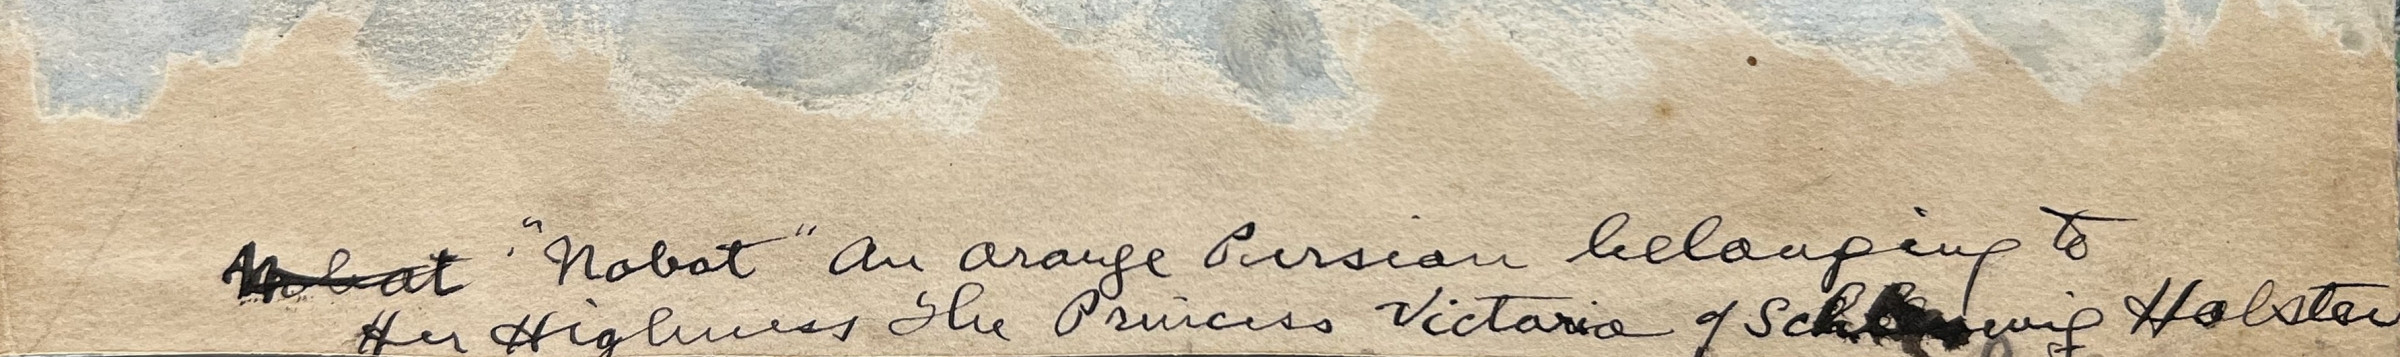 Nobat "Nobat" An orange Persian belonging to
Her Highness The Princess Victoria of Schleswig Holstein